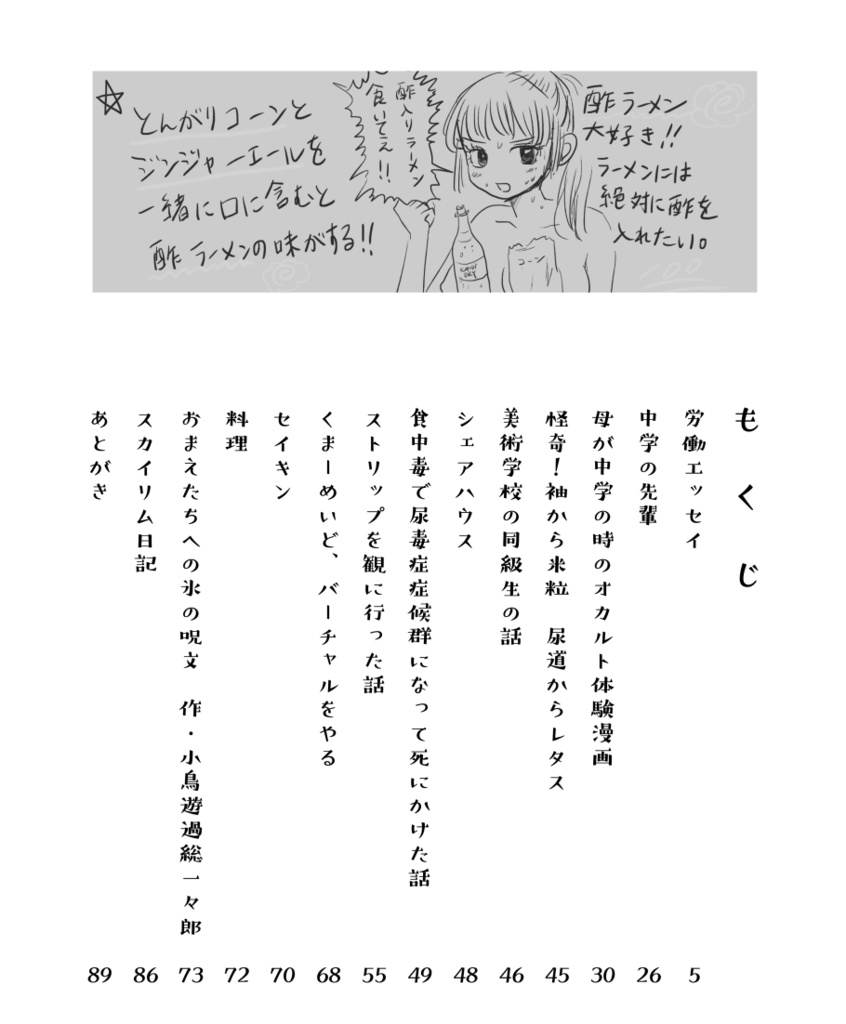 酢ラーメン
大好き!!
ラーメンには
絶対に酢を
入れたい。
酢入りラーメン
食いてえ!!
CANADA
DRY
コーン
☆とんがりコーンと
ジンジャーエールを
一緒に口に含むと
酢ラーメンの味がする!!
もくじ
労働エッセイ 5
中学の先輩 26
母が中学の時のオカルト体験漫画 30
怪奇!袖から米粒 尿道からレタス 45
美術学校の同級生の話 46
シェアハウス 48
食中毒で尿毒症症候群になって死にかけた話 49
ストリップを観に行った話 55
くまーめいど、バーチャルをやる 68
セイキン 70
料理 72
おまえたちへの氷の呪文 作・小鳥遊過総一々郎 73
スカイリム日記 86
あとがき 89